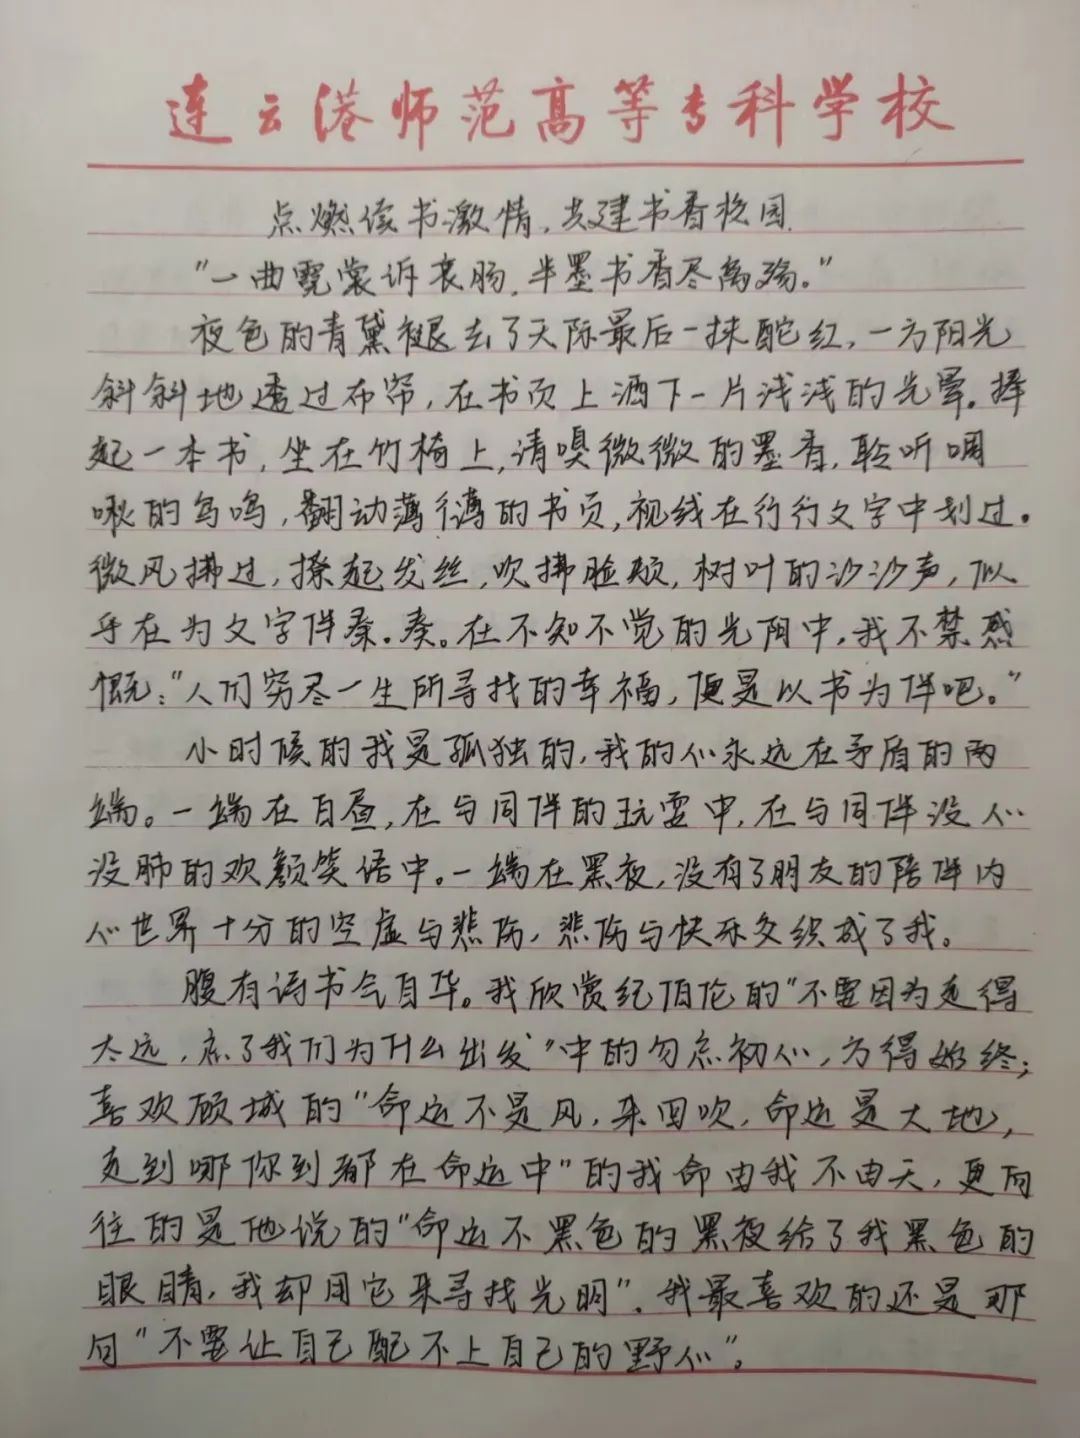 连云港师范高等专科学校
点燃读书激情,共建书香校园.
"一曲霓裳诉衷肠,半墨书香尽离殇。"
夜色的青黛褪去了天际最后一抹酡红,一方阳光
斜斜地透过布帘,在书页上洒下一片浅浅的光晕。捧
起一本书,坐在竹椅上,请嗅微微的墨香,聆听啁
啾的鸟鸣,翻动薄薄的书页,视线在行行文字中划过。
微风拂过,撩起发丝,吹拂脸颊,树叶的沙沙声,似
乎在为文字伴奏.奏。在不知不觉的光阴中,我不禁感
慨:"人们穷尽一生所寻找的幸福,便是以书为伴吧。"
小时候的我是孤独的,我的心永远在矛盾的两
端。一端在白昼,在与同伴的玩耍中,在与同伴没心
没肺的欢颜笑语中。一端在黑夜,没有了朋友的陪伴内
心世界十分的空虚与悲伤,悲伤与快乐交织成了我。
腹有诗书气自华。我欣赏纪伯伦的"不要因为走得
太远,忘了我们为什么出发"中的勿忘初心,方得始终;
喜欢顾城的"命运不是风,来回吹,命运是大地,
走到哪你到都在命运中"的我命由我不由天,更向
往的是他说的"命运不黑色的黑夜给了我黑色的
眼睛,我却用它来寻找光明".我最喜欢的还是那
句"不要让自己配不上自己的野心"。